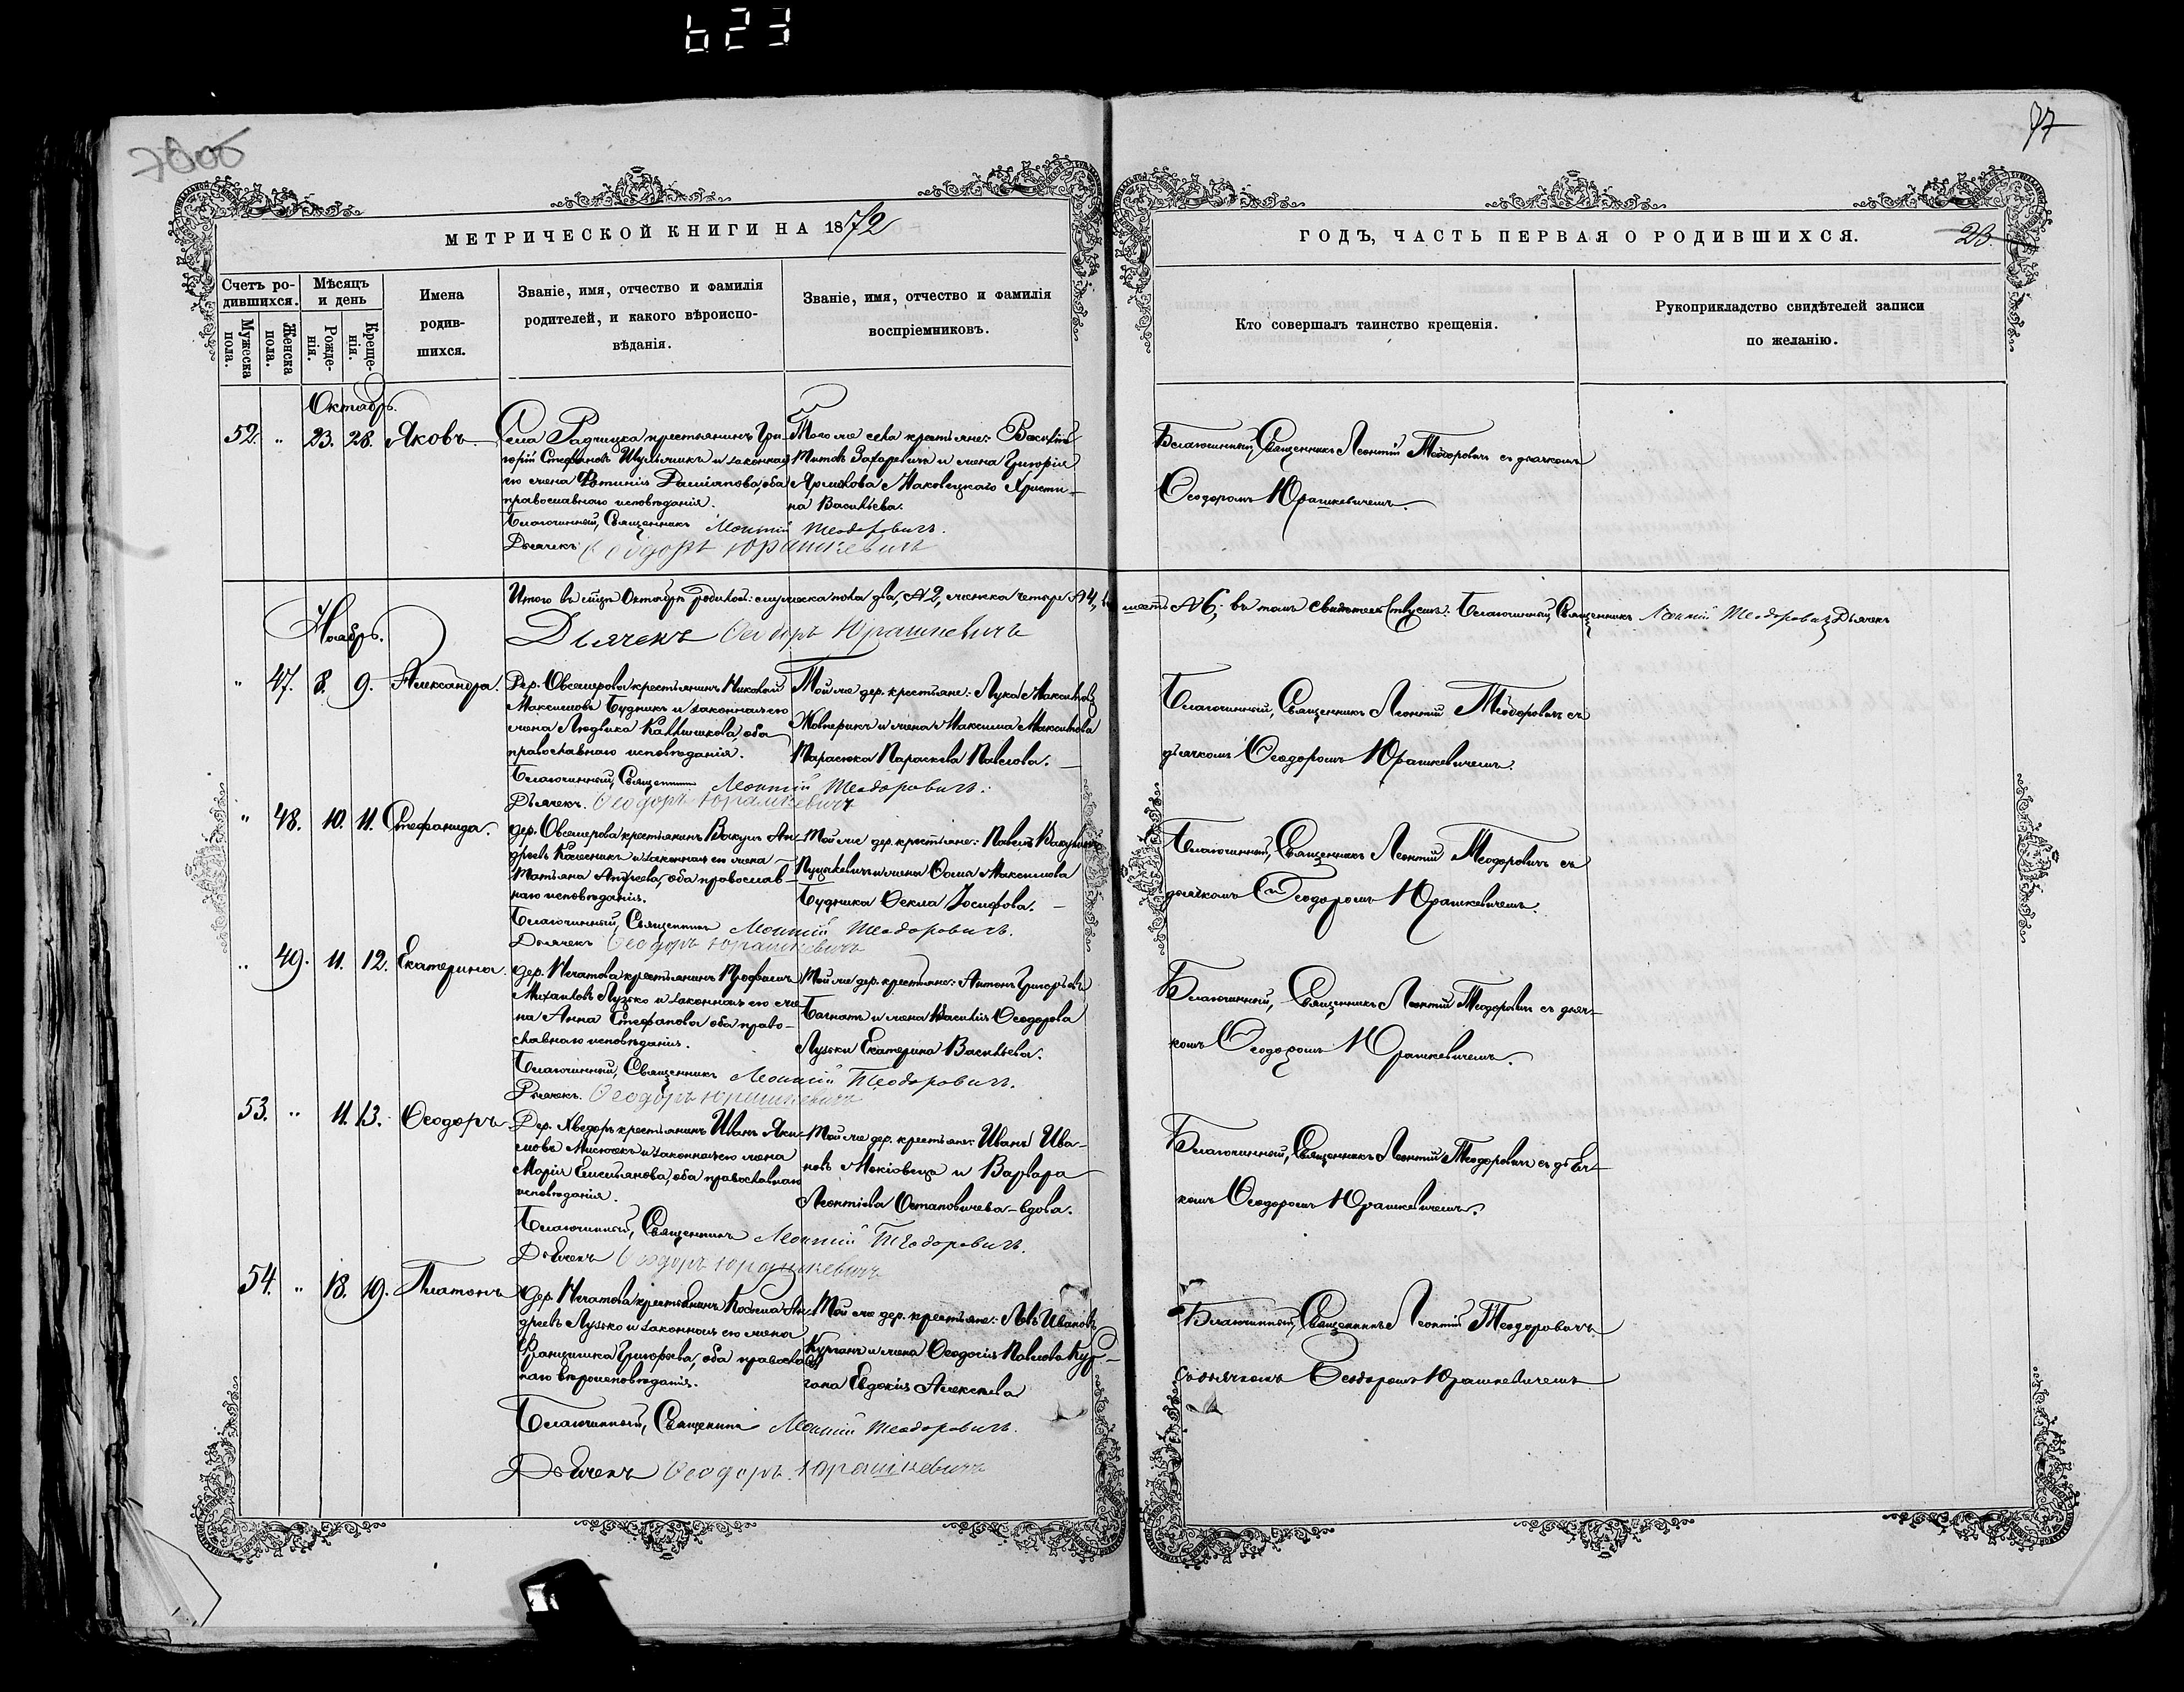 623
77
МЕТРИЧЕСКОЙ КНИГИ НА 1872
ГОДЪ, ЧАСТЬ ПЕРВАЯ О РОДИВШИХСЯ.
23
Счетъ ро-
дившихся.
Мужеска
пола.
Женска
пола.
Мѣсяцъ
и день
Рожде-
нія.
Креще-
нія.
Имена
родив-
шихся.
Званіе, имя, отчество и фамилія
родителей, и какого вѣроиспо-
вѣданія.
Званіе, имя, отчество и фамилія
воспріемниковъ.
Кто совершалъ таинство крещенія.
Рукоприкладство свидѣтелей записи
по желанію.
Октябрь.
52. " 23. 28. Яковъ
Села Радчицка крестьянинъ Гри-
горій Стефановъ и законная
его жена Фотинія Даміанова, оба
православнаго исповѣданія.
Благочинный, Священникъ Леонтій Теодоровичъ.
Дьячекъ Ѳеодоръ Юрашкевичъ
Того же села крестьяне: Василій
Титовъ Захаревичъ и жена Григорія
Маковецкаго Христи-
на Васильева.
Благочинный, Священникъ Леонтій Теодоровичъ съ дьячкомъ
Ѳеодоромъ Юрашкевичемъ.
Итого въ Октябрѣ родилось: мужеска пола два, №2, женска четыре №4, шесть №6; въ томъ свидѣтельствуемъ: Благочинный, Священникъ Леонтій Теодоровичъ Дьячекъ
Дьячекъ Ѳеодоръ Юрашкевичъ
Ноябрь.
" 47. 8. 9. Александра.
Дер. Овсемирова крестьянинъ Николай
Максимовъ Будникъ и законная его
жена Людвика Каллиникова, оба
православнаго исповѣданія.
Благочинный, Священникъ Леонтій Теодоровичъ.
Дьячекъ. Ѳеодоръ Юрашкевичъ
Той же дер. крестьяне: Лука Максимовъ
Жовнерикъ и жена Максима Максимова
Тарасюка Параскева Павлова.
Благочинный, Священникъ Леонтій Теодоровичъ съ
дьячкомъ Ѳеодоромъ Юрашкевичемъ.
" 48. 10. 11. Стефанида.
дер. Овсемирова крестьянинъ Вакулъ Ан-
дреевъ и законная его жена
Татьяна Андреева, оба православ-
наго исповѣданія.
Благочинный, Священникъ Леонтій Теодоровичъ.
Дьячекъ Ѳеодоръ Юрашкевичъ
Той же дер. крестьяне: Павелъ Вакуловъ
и жена Ѳомы Максимова
Будника Ѳекла Іосифова.
Благочинный, Священникъ Леонтій Теодоровичъ съ
дьячкомъ Ѳеодоромъ Юрашкевичемъ.
" 49. 11. 12. Екатерина.
дер. Нечатова крестьянинъ
Михаиловъ Лузько и законная его же-
на Анна Стефанова оба право-
славнаго исповѣданія.
Благочинный, Священникъ Леонтій Теодоровичъ.
Дьячекъ. Ѳеодоръ Юрашкевичъ
Той же дер. крестьяне: Антонъ Григорьевъ
Богнатъ и жена Василія Ѳеодорова
Лузьки Екатерина Васильева.
Благочинный, Священникъ Леонтій Теодоровичъ съ дьяч-
комъ Ѳеодоромъ Юрашкевичемъ.
53. " 11. 13. Ѳеодоръ
Дер. крестьянинъ Иванъ Яки-
мовъ и законная его жена
Марія Емельянова, оба православнаго
исповѣданія.
Благочинный, Священникъ Леонтій Теодоровичъ.
Дьячекъ Ѳеодоръ Юрашкевичъ
Той же дер. крестьяне: Иванъ Ива-
новъ и Варвара
Леонтіева Остановичева - вдова.
Благочинный, Священникъ Леонтій Теодоровичъ съ дьяч-
комъ Ѳеодоромъ Юрашкевичемъ.
54. " 18. 19. Платонъ
дер. Нечатова крестьянинъ Козьма Ан-
дреевъ Лузько и законная его жена
Францишка Григорьева, оба православ-
наго вѣроисповѣданія.
Благочинный, Священникъ Леонтій Теодоровичъ.
Дьячекъ Ѳеодоръ Юрашкевичъ
Той же дер. крестьяне: Левъ Ивановъ
Курганъ и жена Ѳеодосія Павлова Кур-
гана Евдокія Алексѣева
Благочинный, Священникъ Леонтій Теодоровичъ
съ дьячкомъ Ѳеодоромъ Юрашкевичемъ